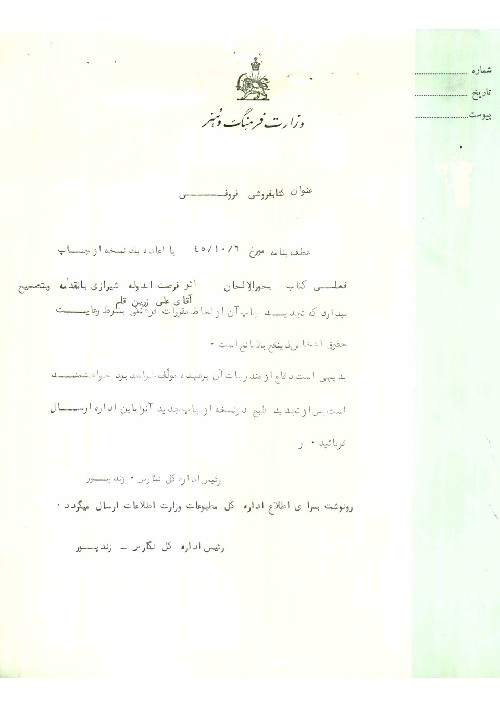 شماره
تاریخ
پیوست
وزارت فرهنگ و هنر
عنوان کتابفروشی فروغی
عطف بنامه مورخ ۴۵/۱۰/۶ با اعاده یک نسخه از چاپ
فعلی کتاب بحورالالحان اثر فرصت الدوله شیرازی بامقدمه وبتصحیح
آقای علی زرین قلم
میدارد که تجدید چاپ آن از لحاظ مقررات فرهنگی بشرط رعایت
حقوق اشخاص ذینفع بلامانع است ۰
بدیهی است دفاع از مندرجات آن بعهده مولف خواهد بود خواهشمند
است پس از تجدید طبع دونسخه از چاپ جدید آنرا باین اداره ارسال
فرمائید ۰ ر
رئیس اداره کل نگارش ۰ زندپور
رونوشت برای اطلاع اداره کل مطبوعات وزارت اطلاعات ارسال میگردد ۰
رئیس اداره کل نگارش ــ زندپور